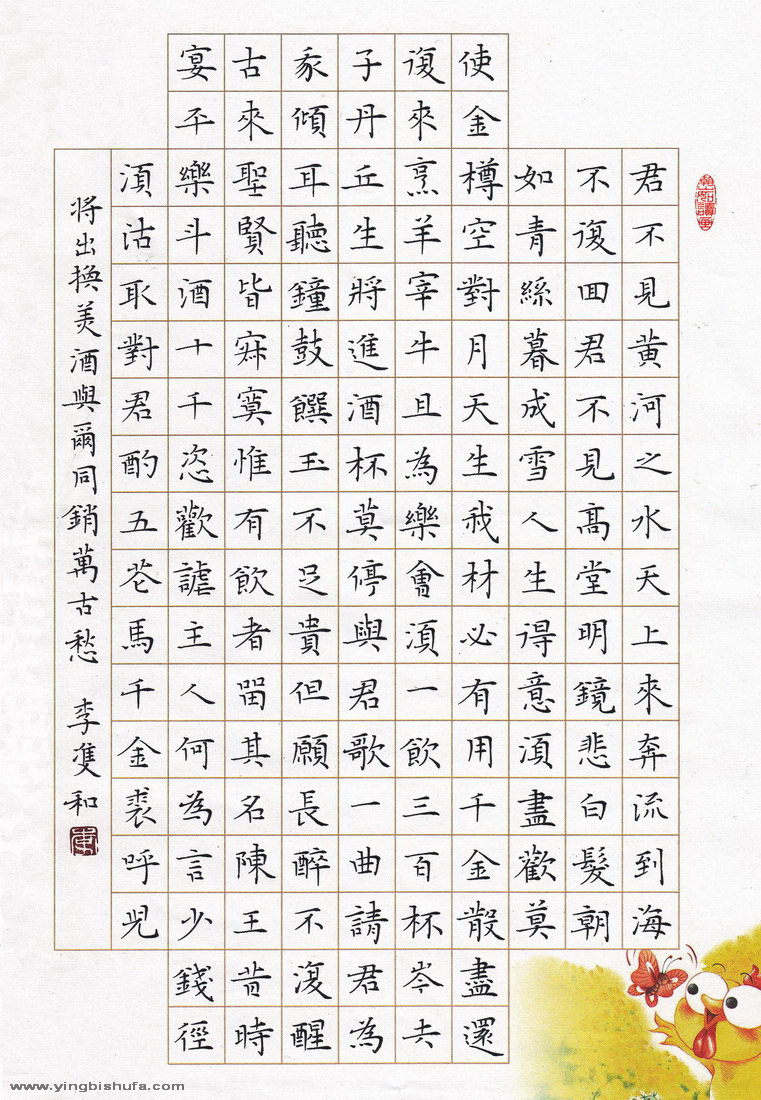 君不見黃河之水天上來奔流到海
不復囬君不見髙堂明鏡悲白髮朝
如青絲暮成雪人生得意須盡歡莫
使金樽空對月天生我材必有用千金散盡還
復來烹羊宰牛且為樂會須一飲三百杯岑夫
子丹丘生將進酒杯莫停與君歌一曲請君為
我傾耳聽鐘鼓饌玉不足貴但願長醉不復醒
古來聖賢皆寂寞惟有飲者留其名陳王昔時
宴平樂斗酒十千恣歡謔主人何為言少錢徑
須沽取對君酌五花馬千金裘呼兒
將出換美酒與爾同銷萬古愁 李雙和
www.yingbishufa.com